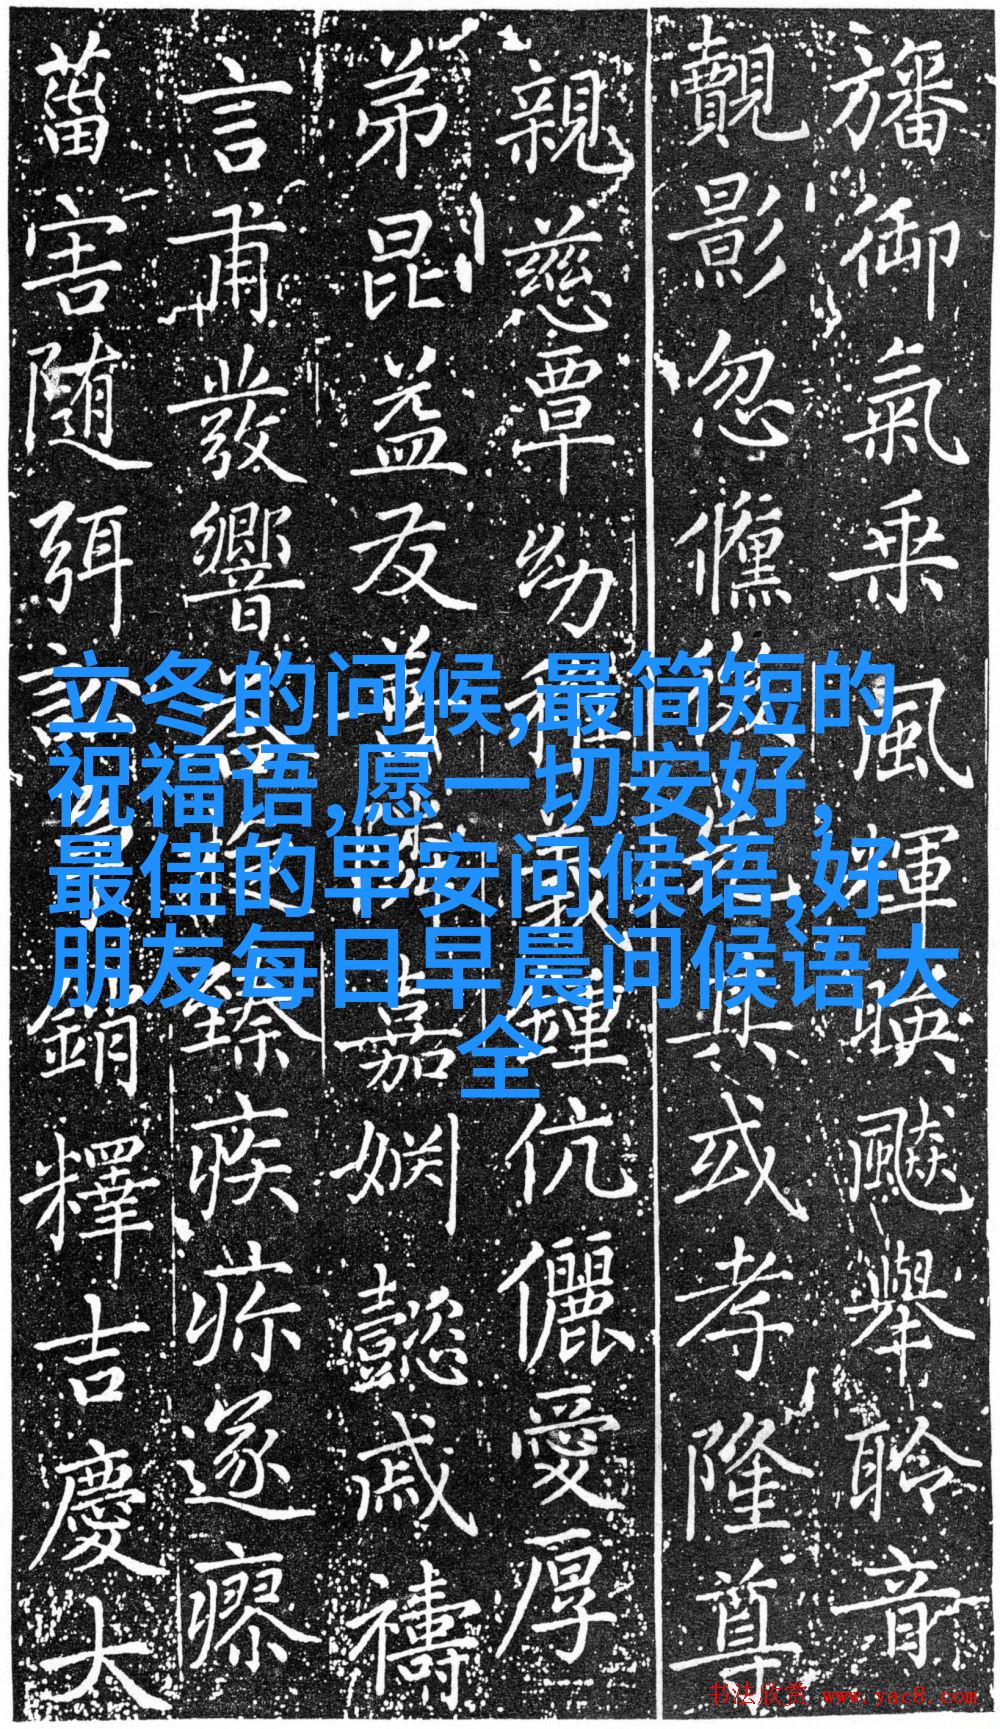 立冬的问候,最简短的
祝福语,愿一切安好，
最佳的早安问候语,好
朋友每日早晨问候语大
全
旛御氣乗風輝暎飈舉聆音
覿影忽其或孝隆尊
親慈覃幼稚義鍾伉儷愛厚
弟昆益友嘉姻懿戚禱
言甫發響臻疾遂瘳
菑害随弭銷釋吉慶大
书法欣赏 www.yac8.com